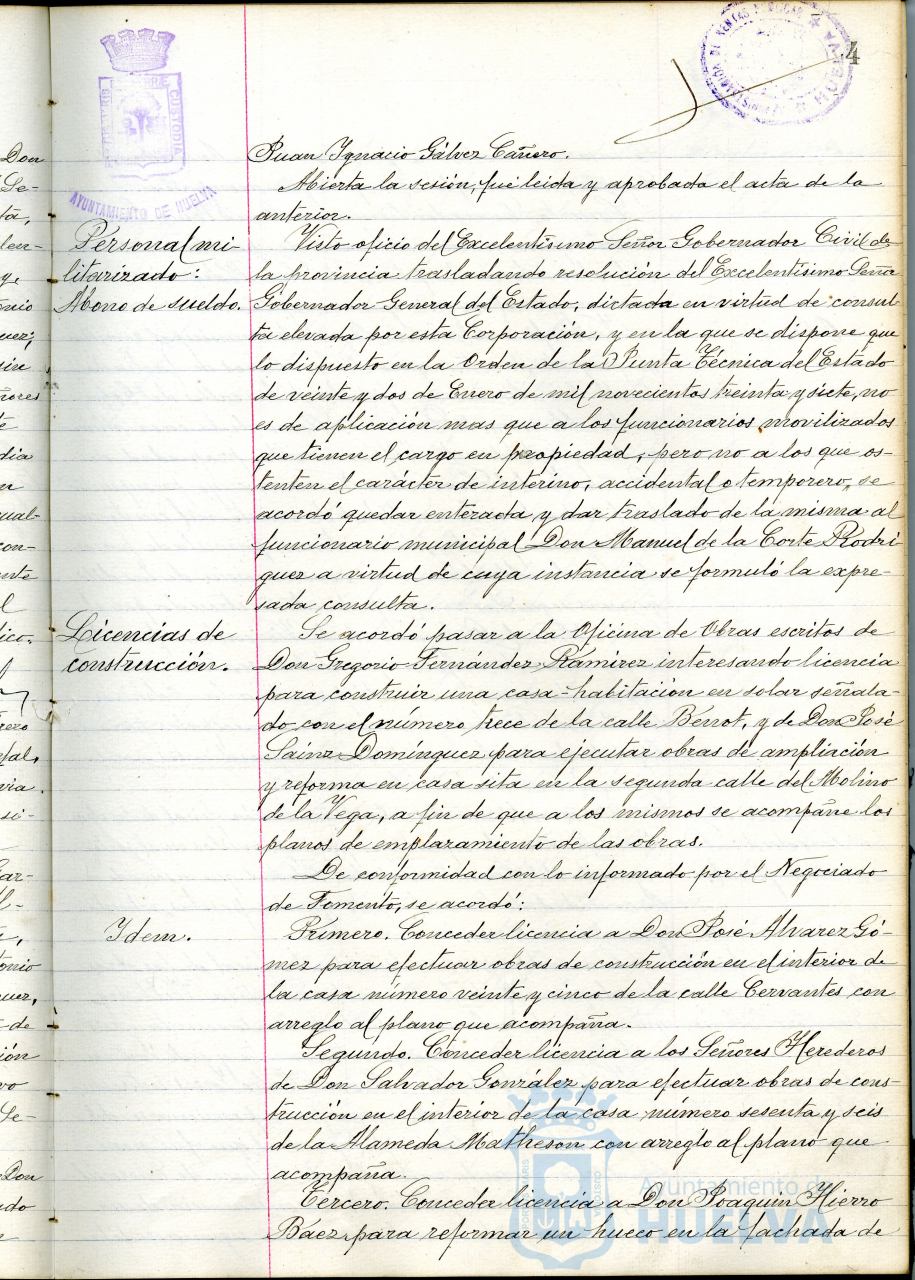 4
AYUNTAMIENTO DE HUELVA
Juan Ignacio Gálvez Cañero.
Abierta la sesión, fué leida y aprobada el acta de la
anterior.
Personal mi-
litarizado:
Abono de sueldo.
Visto oficio del Excelentísimo Señor Gobernador Civil de
la provincia trasladando resolución del Excelentísimo Señor
Gobernador General del Estado, dictada en virtud de consul-
ta elevada por esta Corporación, y en la que se dispone que
lo dispuesto en la Orden de la Junta Técnica del Estado
de veinte y dos de Enero de mil novecientos treinta y siete, no
es de aplicación mas que a los funcionarios movilizados
que tienen el cargo en propiedad, pero no a los que os-
tenten el carácter de interino, accidental o temporero, se
acordó quedar enterada y dar traslado de la misma al
funcionario municipal Don Manuel de la Corte Rodrí-
guez a virtud de cuya instancia se formuló la expre-
sada consulta.
Licencias de
construcción.
Se acordó pasar a la Oficina de Obras escritos de
Don Gregorio Fernández Ramírez interesando licencia
para construir una casa-habitación en solar señala-
do con el número trece de la calle Berrot, y de Don José
Sáinz Domínguez para ejecutar obras de ampliación
y reforma en casa sita en la segunda calle del Molino
de la Vega, a fin de que a los mismos se acompañe los
planos de emplazamiento de las obras.
De conformidad con lo informado por el Negociado
de Fomento, se acordó:
Idem.
Primero. Conceder licencia a Don José Alvarez Gó-
mez para efectuar obras de construcción en el interior de
la casa número veinte y cinco de la calle Cervantes con
arreglo al plano que acompaña.
Segundo. Conceder licencia a los Señores Herederos
de Don Salvador González para efectuar obras de cons-
trucción en el interior de la casa número sesenta y seis
de la Alameda Matheson con arreglo al plano que
acompaña.
Tercero. Conceder licencia a Don Joaquin Hierro
Báez para reformar un hueco en la fachada de
Ayuntamiento de
HUELVA